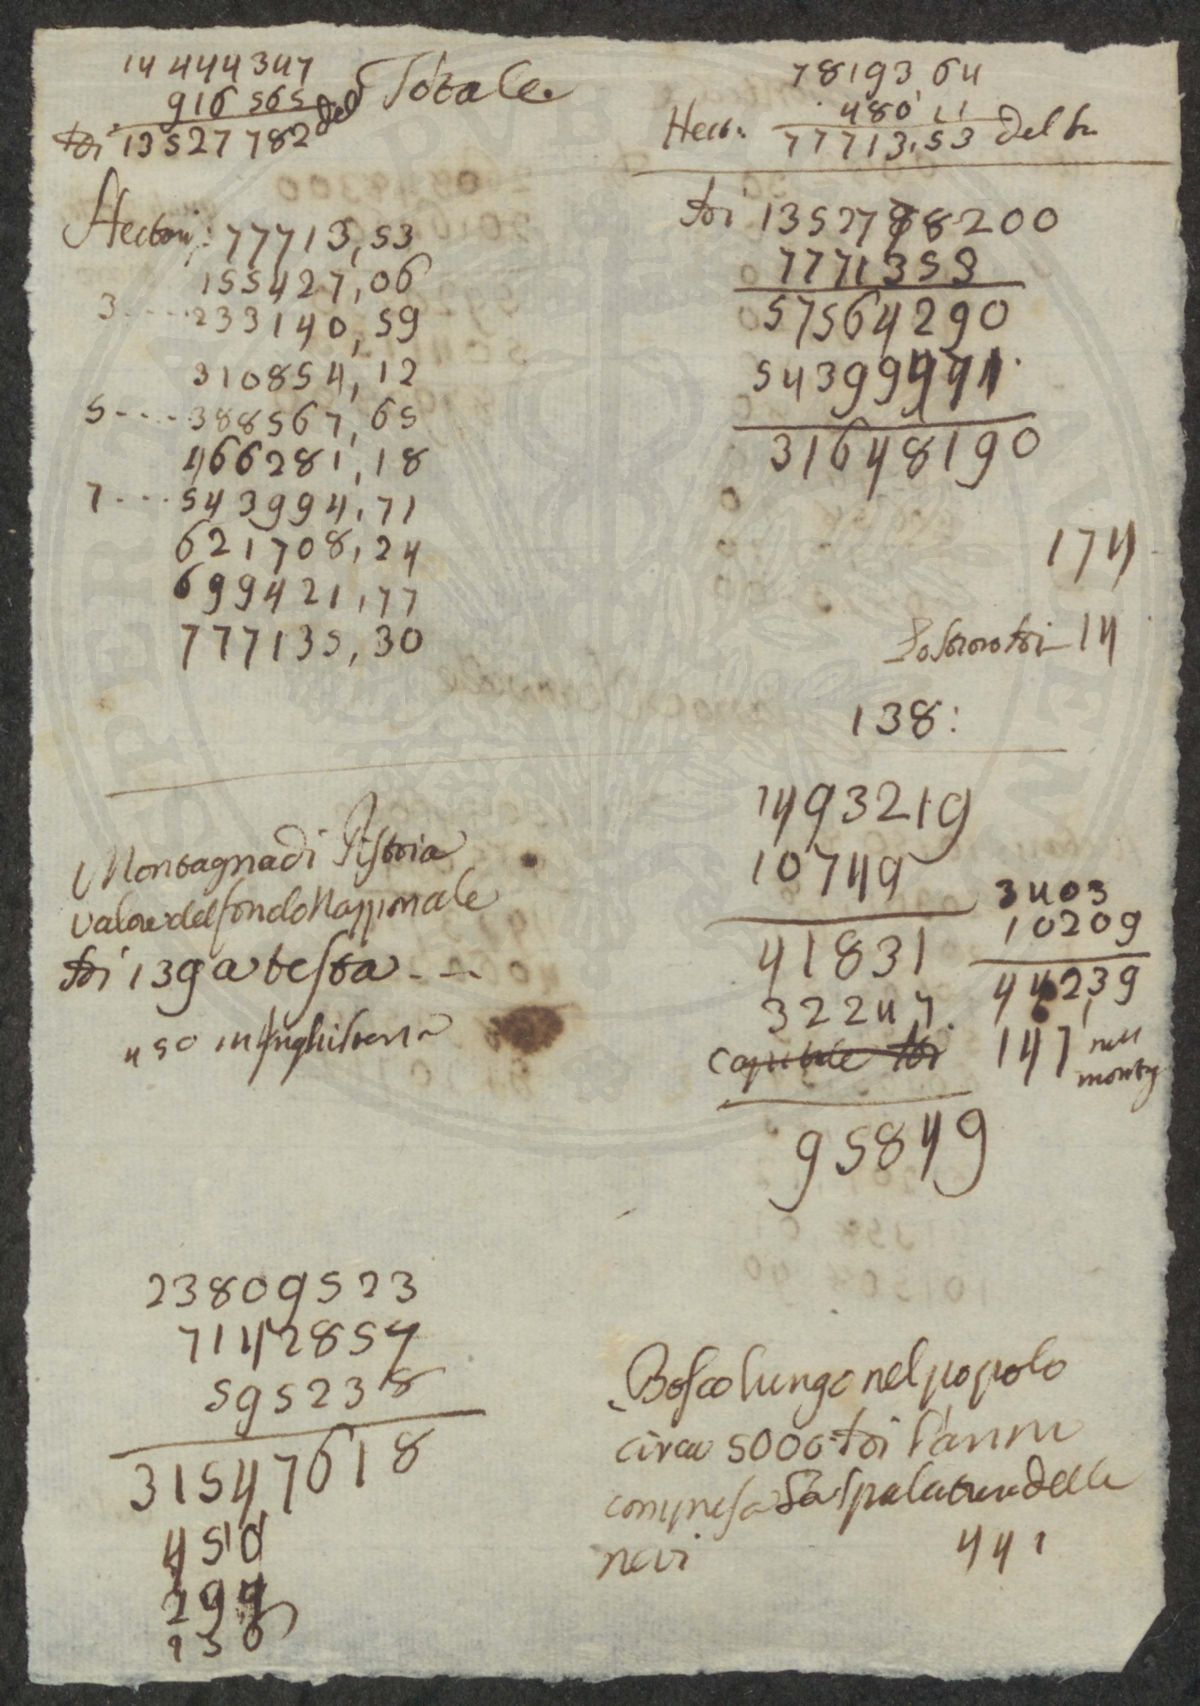 14444347
916565 del Totale
fri 13527782
78193,64
480 11
Hect: 77713,53 del fr
Hectari: 77713,53
155427,06
3 - - - - 233140,59
310854,12
5 - - - - 388567,65
466281,18
7 - - - 543994,71
621708,24
699421,77
777135,30
fri 1352788200
7771353
57564290
54399471
31648190
174
14
138:
Montagna di Pistoia
valore del fondo Nazzionale
fri 139 a testa - - -
450 in Inghilterra
1493219
10749
41831
32247
capitale fri
95849
3403
10209
44239
147 nell
monty
23809523
7142857
595238
31547618
450
299
150
Boscolungo nel popolo
circa 5000 fri l'anno
compresa la spalatura delle
nevi 441